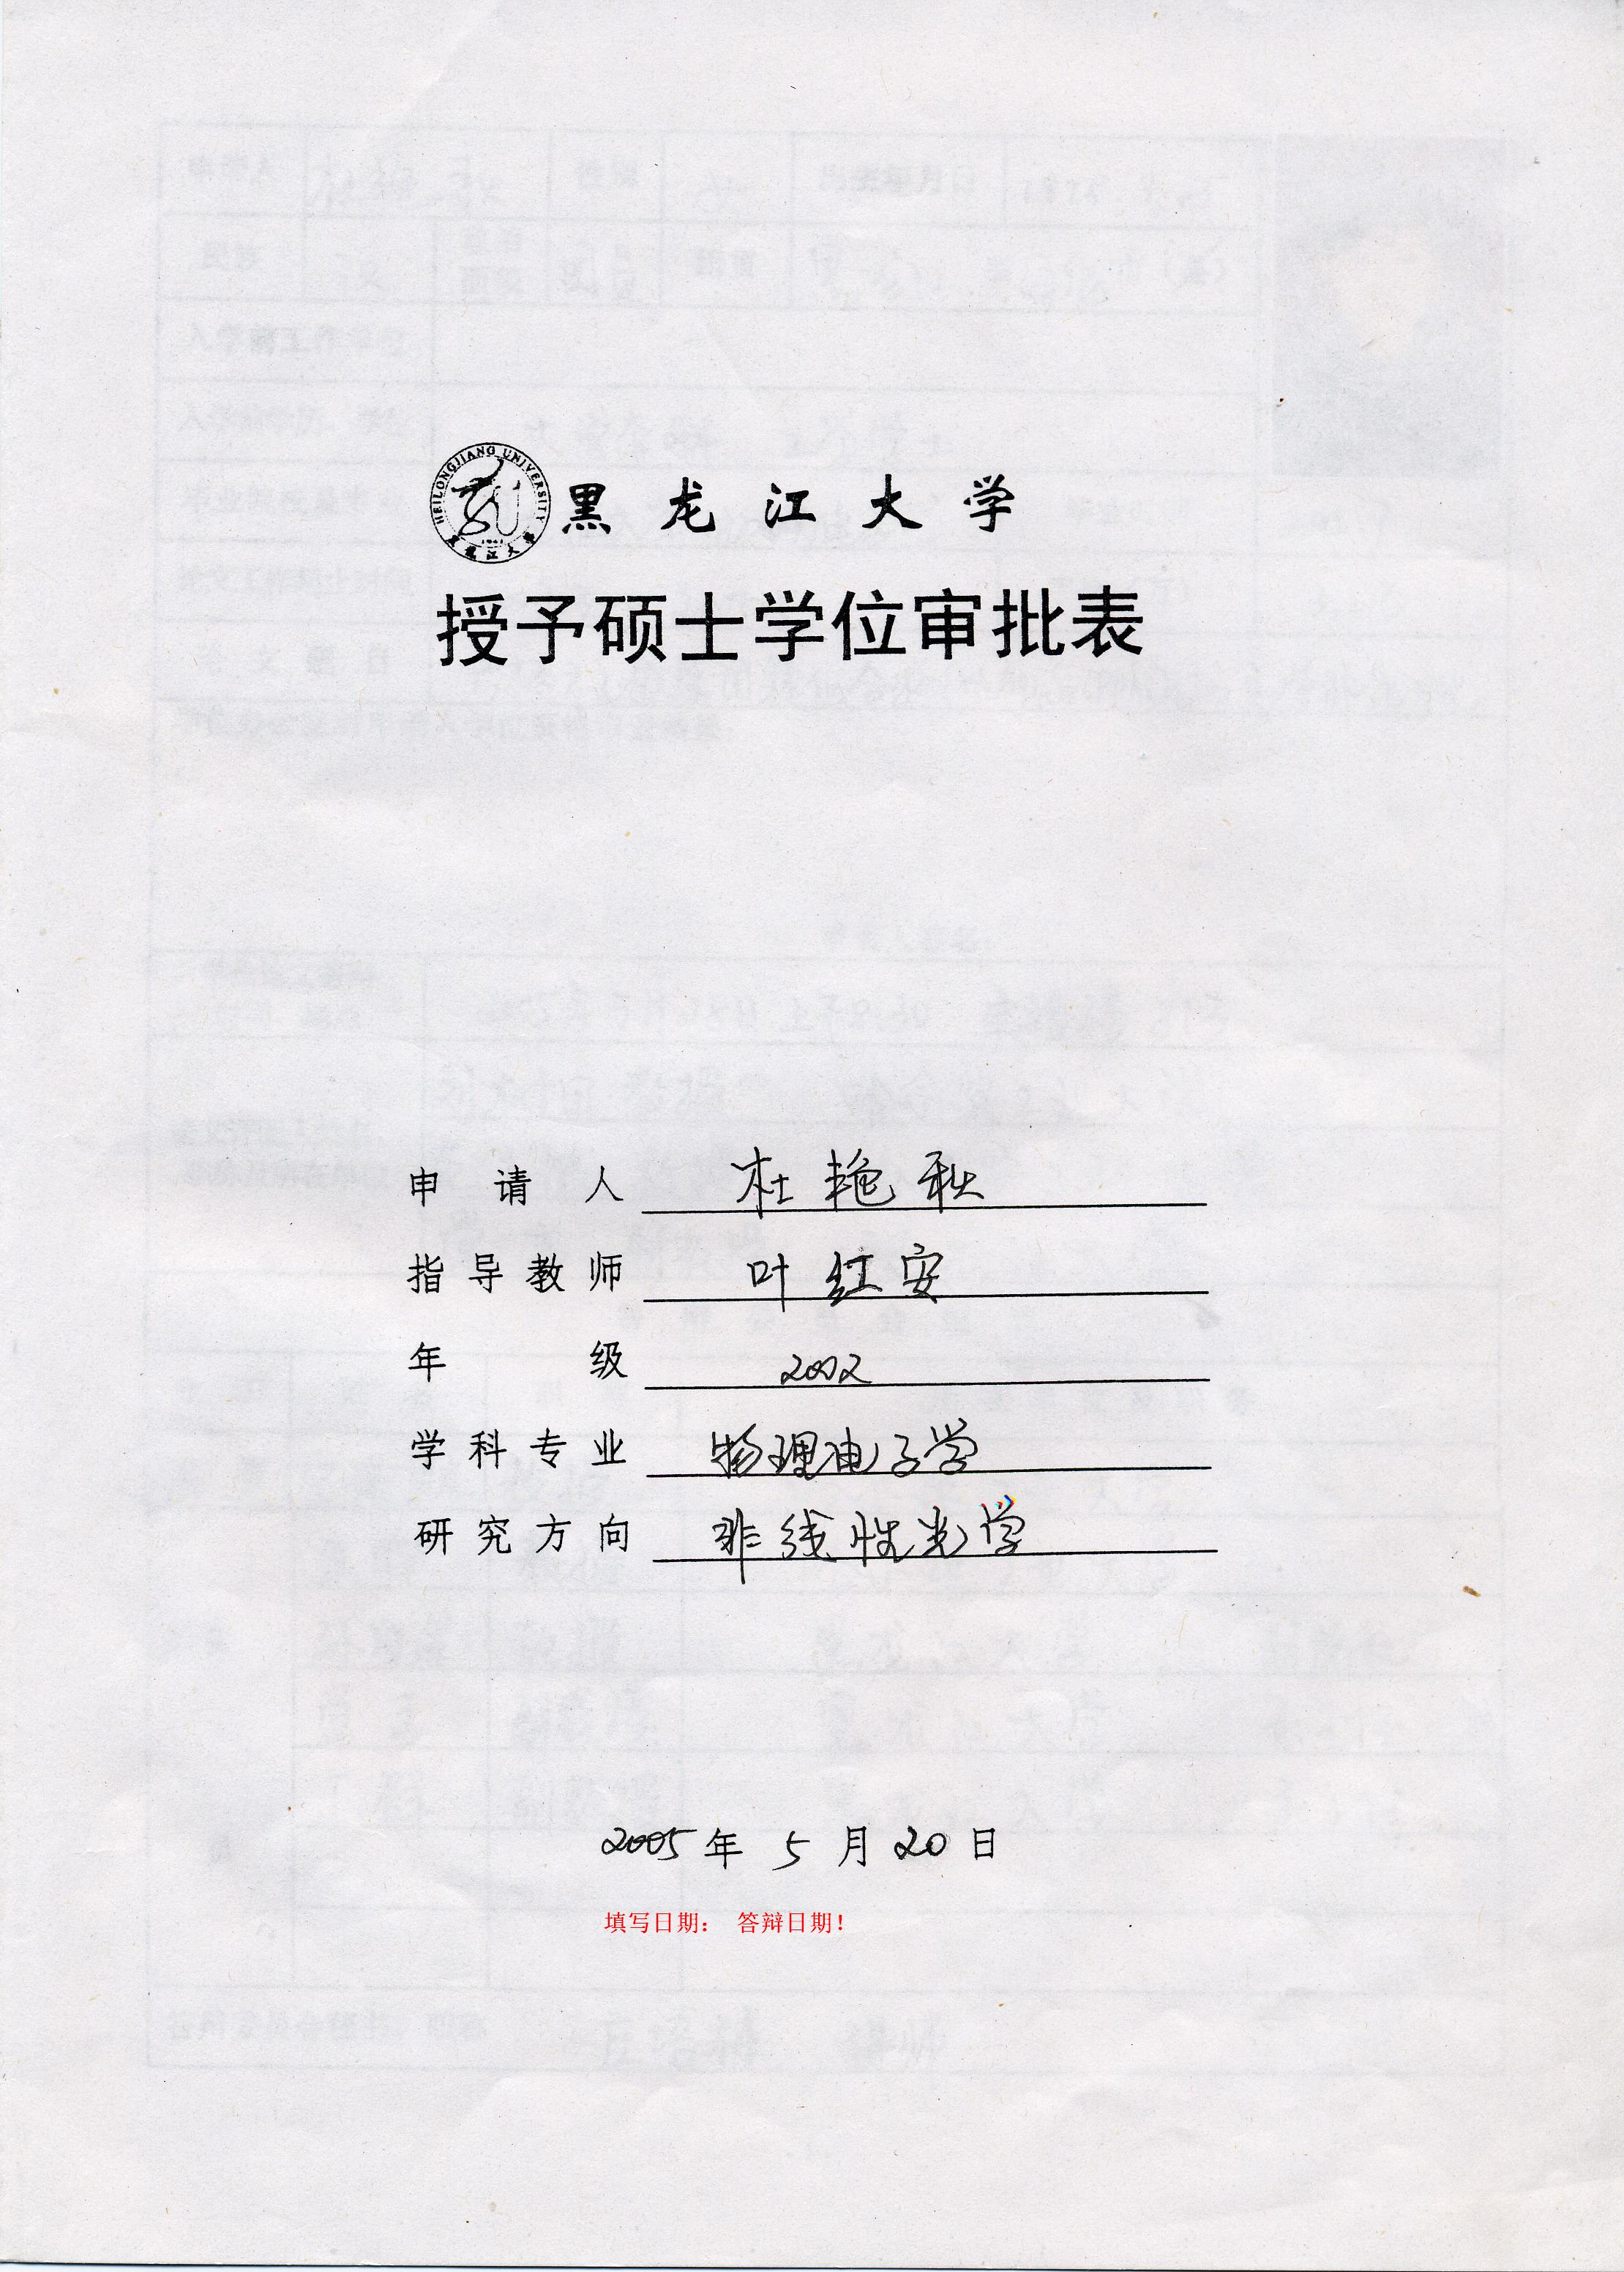 HEILONGJIANG UNIVERSITY
黑龙江大学
授予硕士学位审批表
申请人 杜艳秋
指导教师 叶红安
年级 2002
学科专业 物理电子学
研究方向 非线性光学
2005年5月20日
填写日期： 答辩日期！